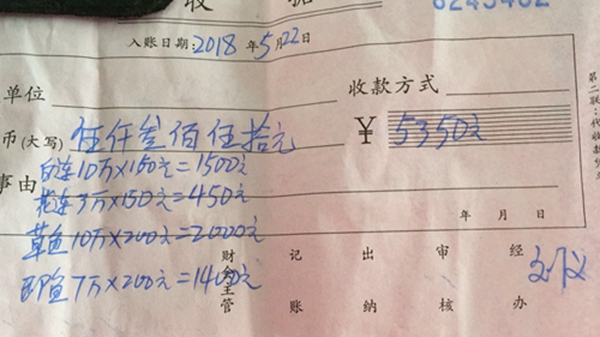 收 据 6245462
入账日期:2018年5月22日
单位
收款方式
币(大写) 伍仟叁佰伍拾元
¥ 5350元
事由
白连10万×150元=1500元
花连3万×150元=450元
草鱼10万×200元=2000元
鱼7万×200元=1400元
年 月 日
财会主管 记账 出纳 审核 经办
第二联:代收款